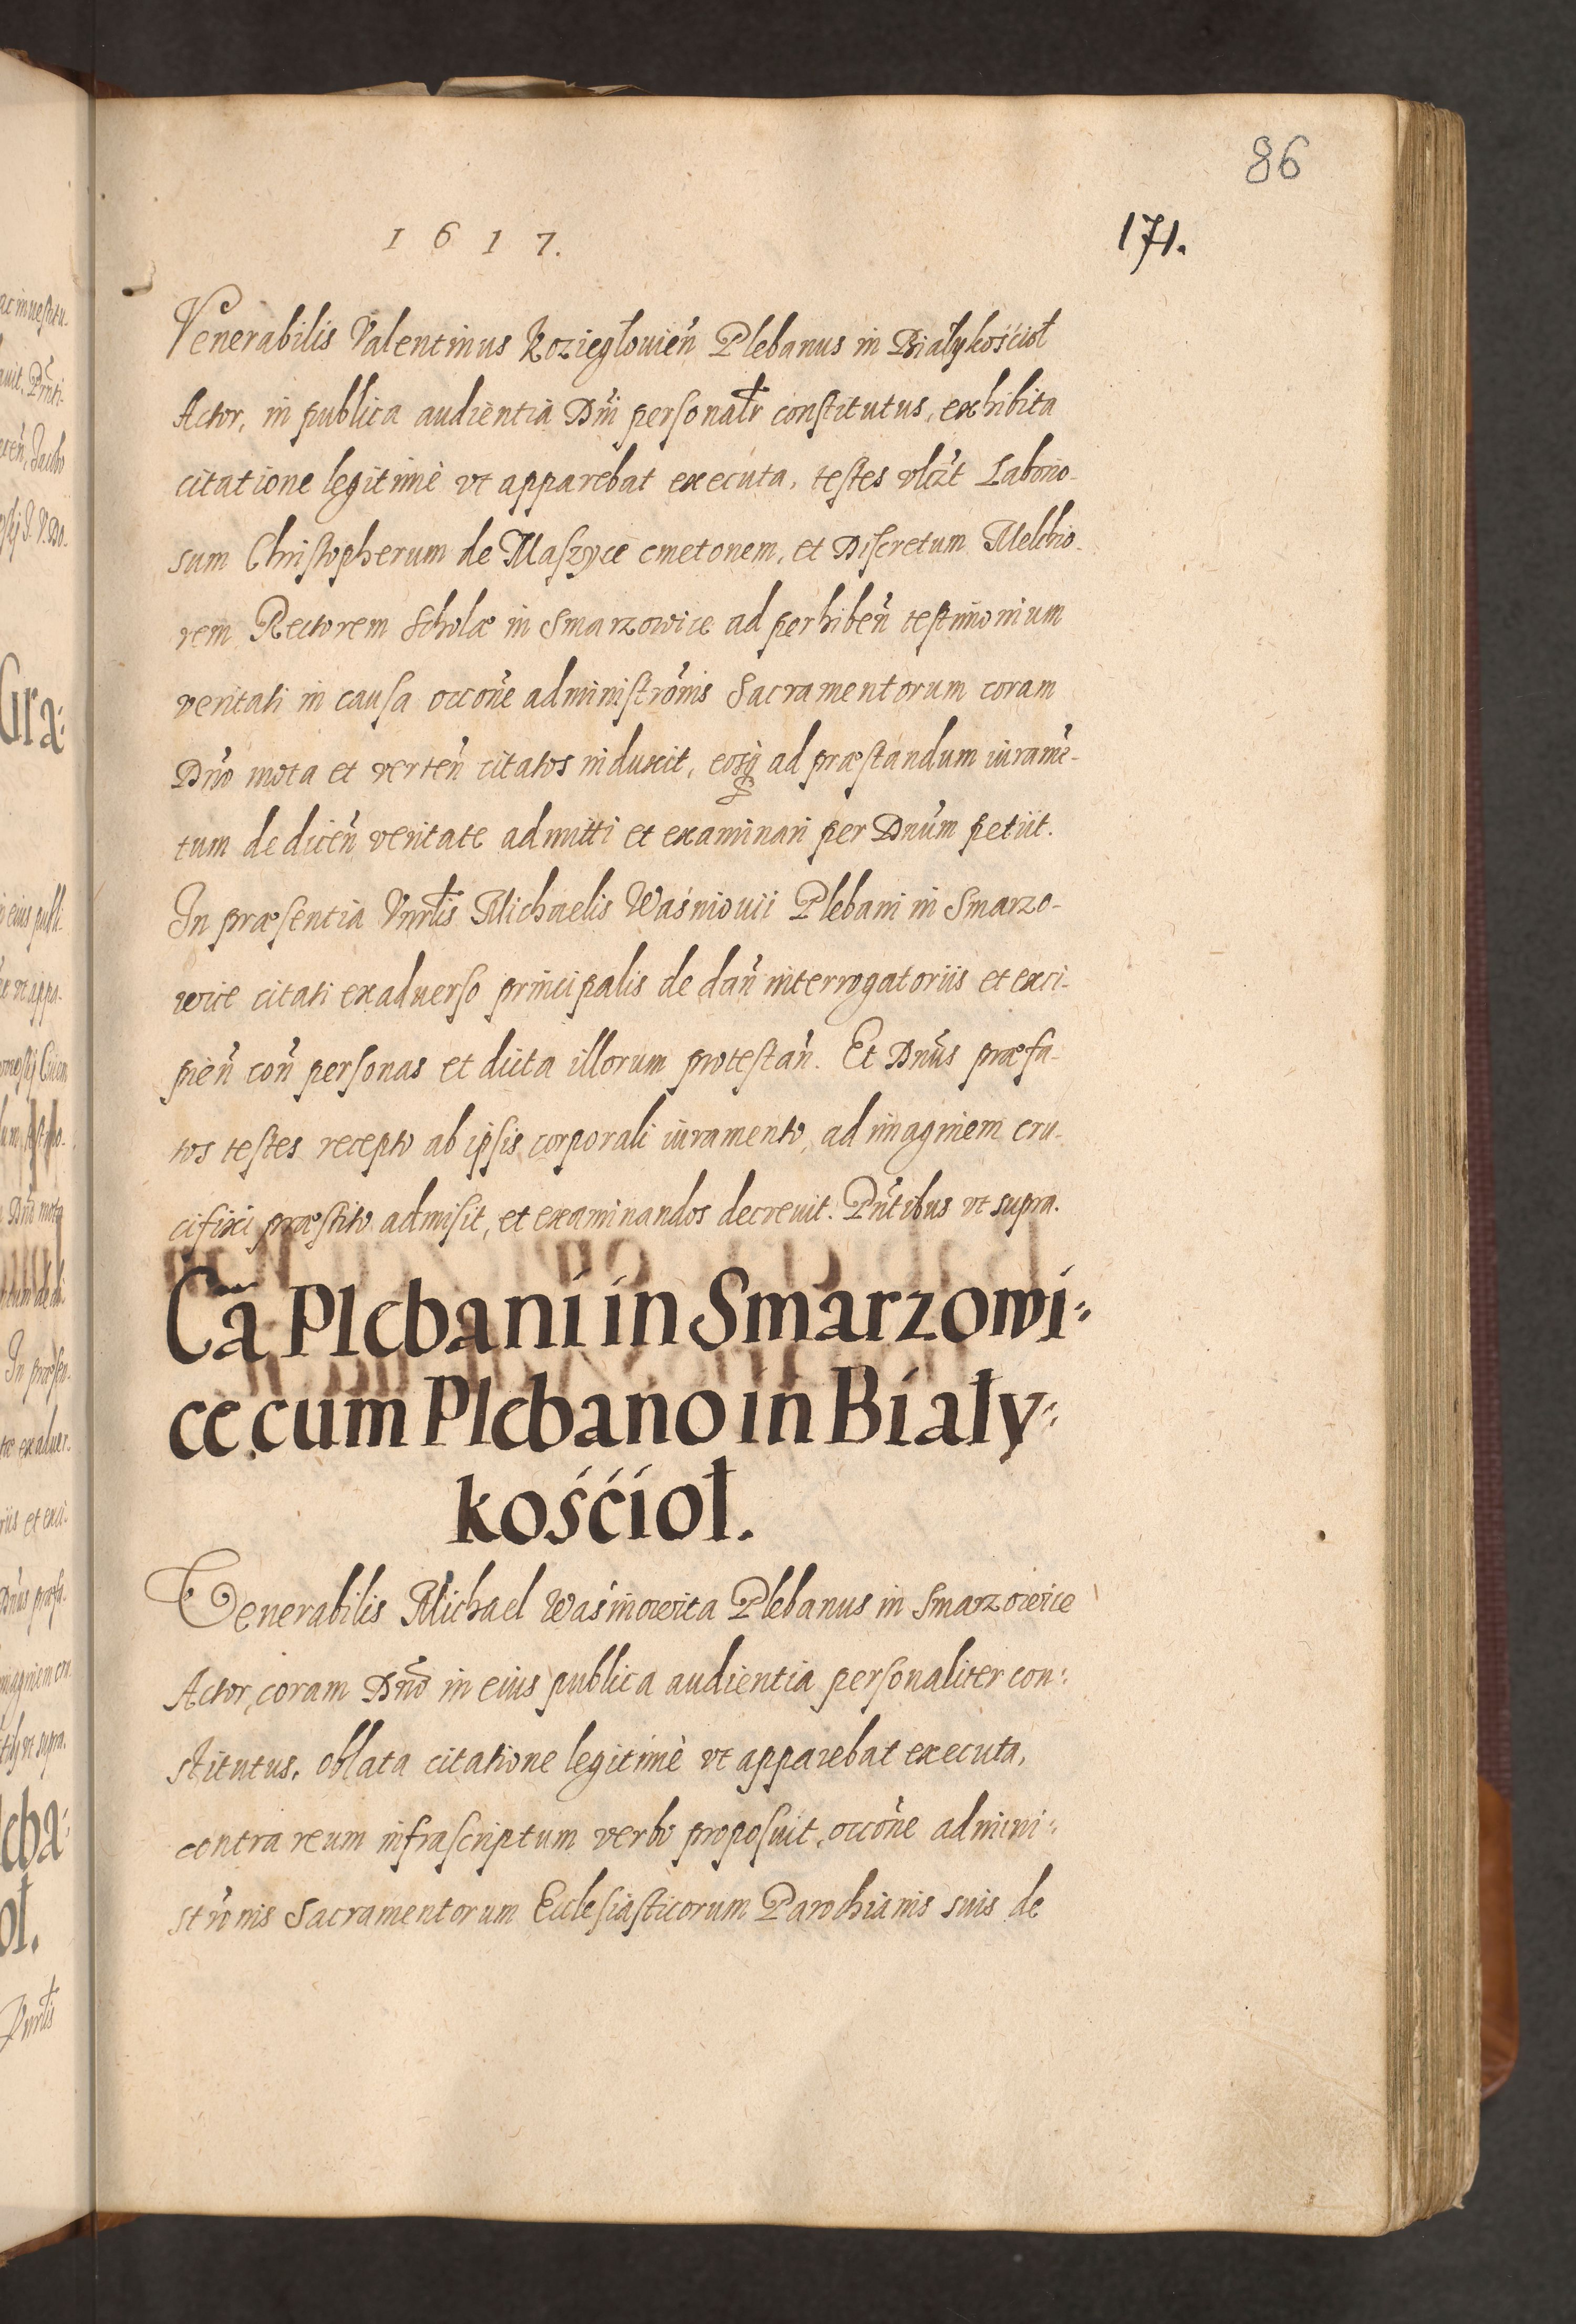 86
171.
1617.
Venerabilis Valentinus Koziegłouień Plebanus in Białykośćioł
Actor, in publica audientia Dni personałr constitutus, exhibita
citatione legitimè vt apparebat executa, testes vlczt Laborio-
sum Christopherum de Maszyce cmetonem, et Discretum Melchio-
rem Rectorem Scholæ in Smarzowice ad perhibeñ testimonium
veritati in causa occõne administrõnis Sacramentorum coram
Dño mota et verteñ citatos induxit, eosq ad præstandum iuramẽ-
tum de diceñ veritate admitti et examinari per Dnũm petiit.
In præsentia Vnrłis Michaelis Waśniouii Plebani in Smarzo-
wice citati exaduerso principalis de dañ interrogatoriis et exci-
pieñ coñ personas et dicta illorum protestañ. Et Dnũs præfa-
tos testes recepto ab ipsis corporali iuramento, ad imaginem cru-
cifixi præstito admisit, et examinandos decreuit. Pñtibus vt supra.
Cã Plebani in Smarzowi-
ce cum Plebano in Biały-
kośćioł.
Venerabilis Michael Waśniowita Plebanus in Smarzowice
Actor, coram Dño in eius publica audientia personaliter con-
stitutus, oblata citatione legitimè vt apparebat executa,
contra reum infrascriptum verbo proposuit, occõne admini-
strõnis Sacramentorum Ecclesiasticorum Parochianis suis de